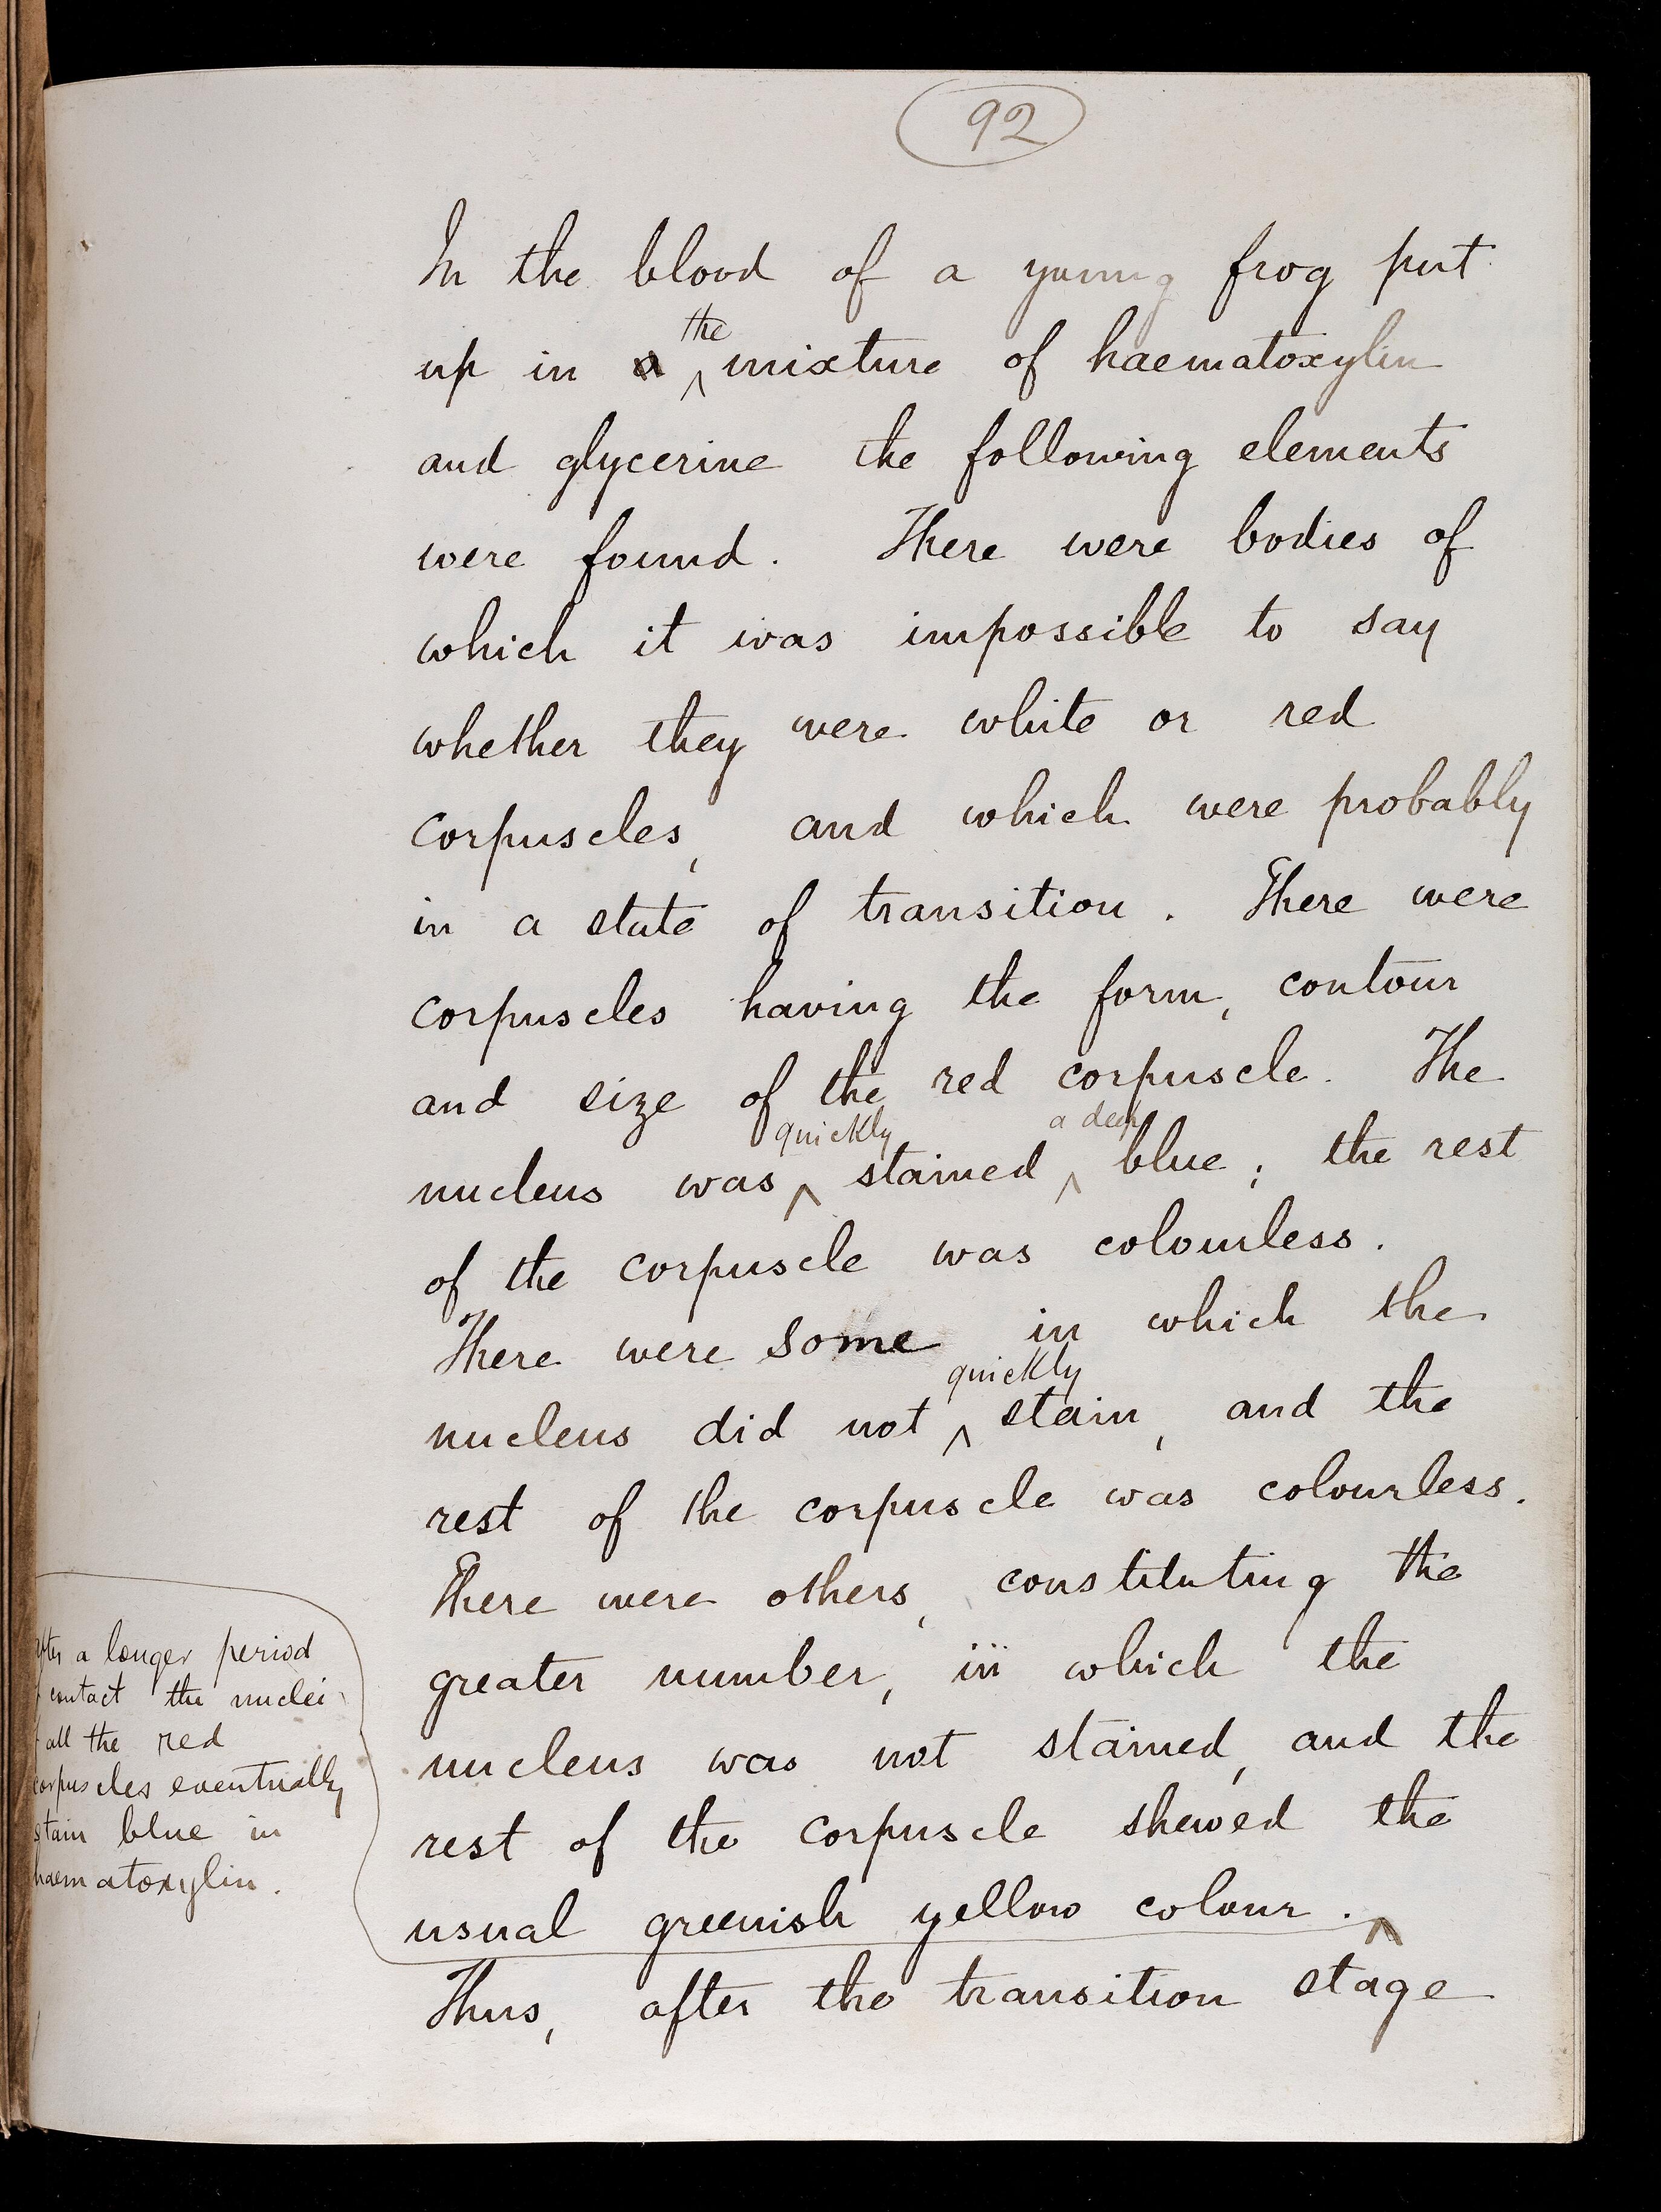 92
In the blood of a young frog put
up in a the mixture of haematoxylin
and glycerine the following elements
were found. There were bodies of
which it was impossible to say
whether they were white or red
corpuscles, and which were probably
in a state of transition. There were
corpuscles having the form, contour
and size of the red corpuscle. The
nucleus was quickly stained a deep blue; the rest
of the corpuscle was colourless.
There were some in which the
nucleus did not quickly stain, and the
rest of the corpuscle was colourless.
There were others, constituting the
greater number, in which the
nucleus was not stained, and the
rest of the corpuscle shewed the
usual greenish yellow colour.
Thus, after the transition stage
after a longer period
contact the nuclei
all the red
corpuscles eventually
stain blue in
haematoxylin.